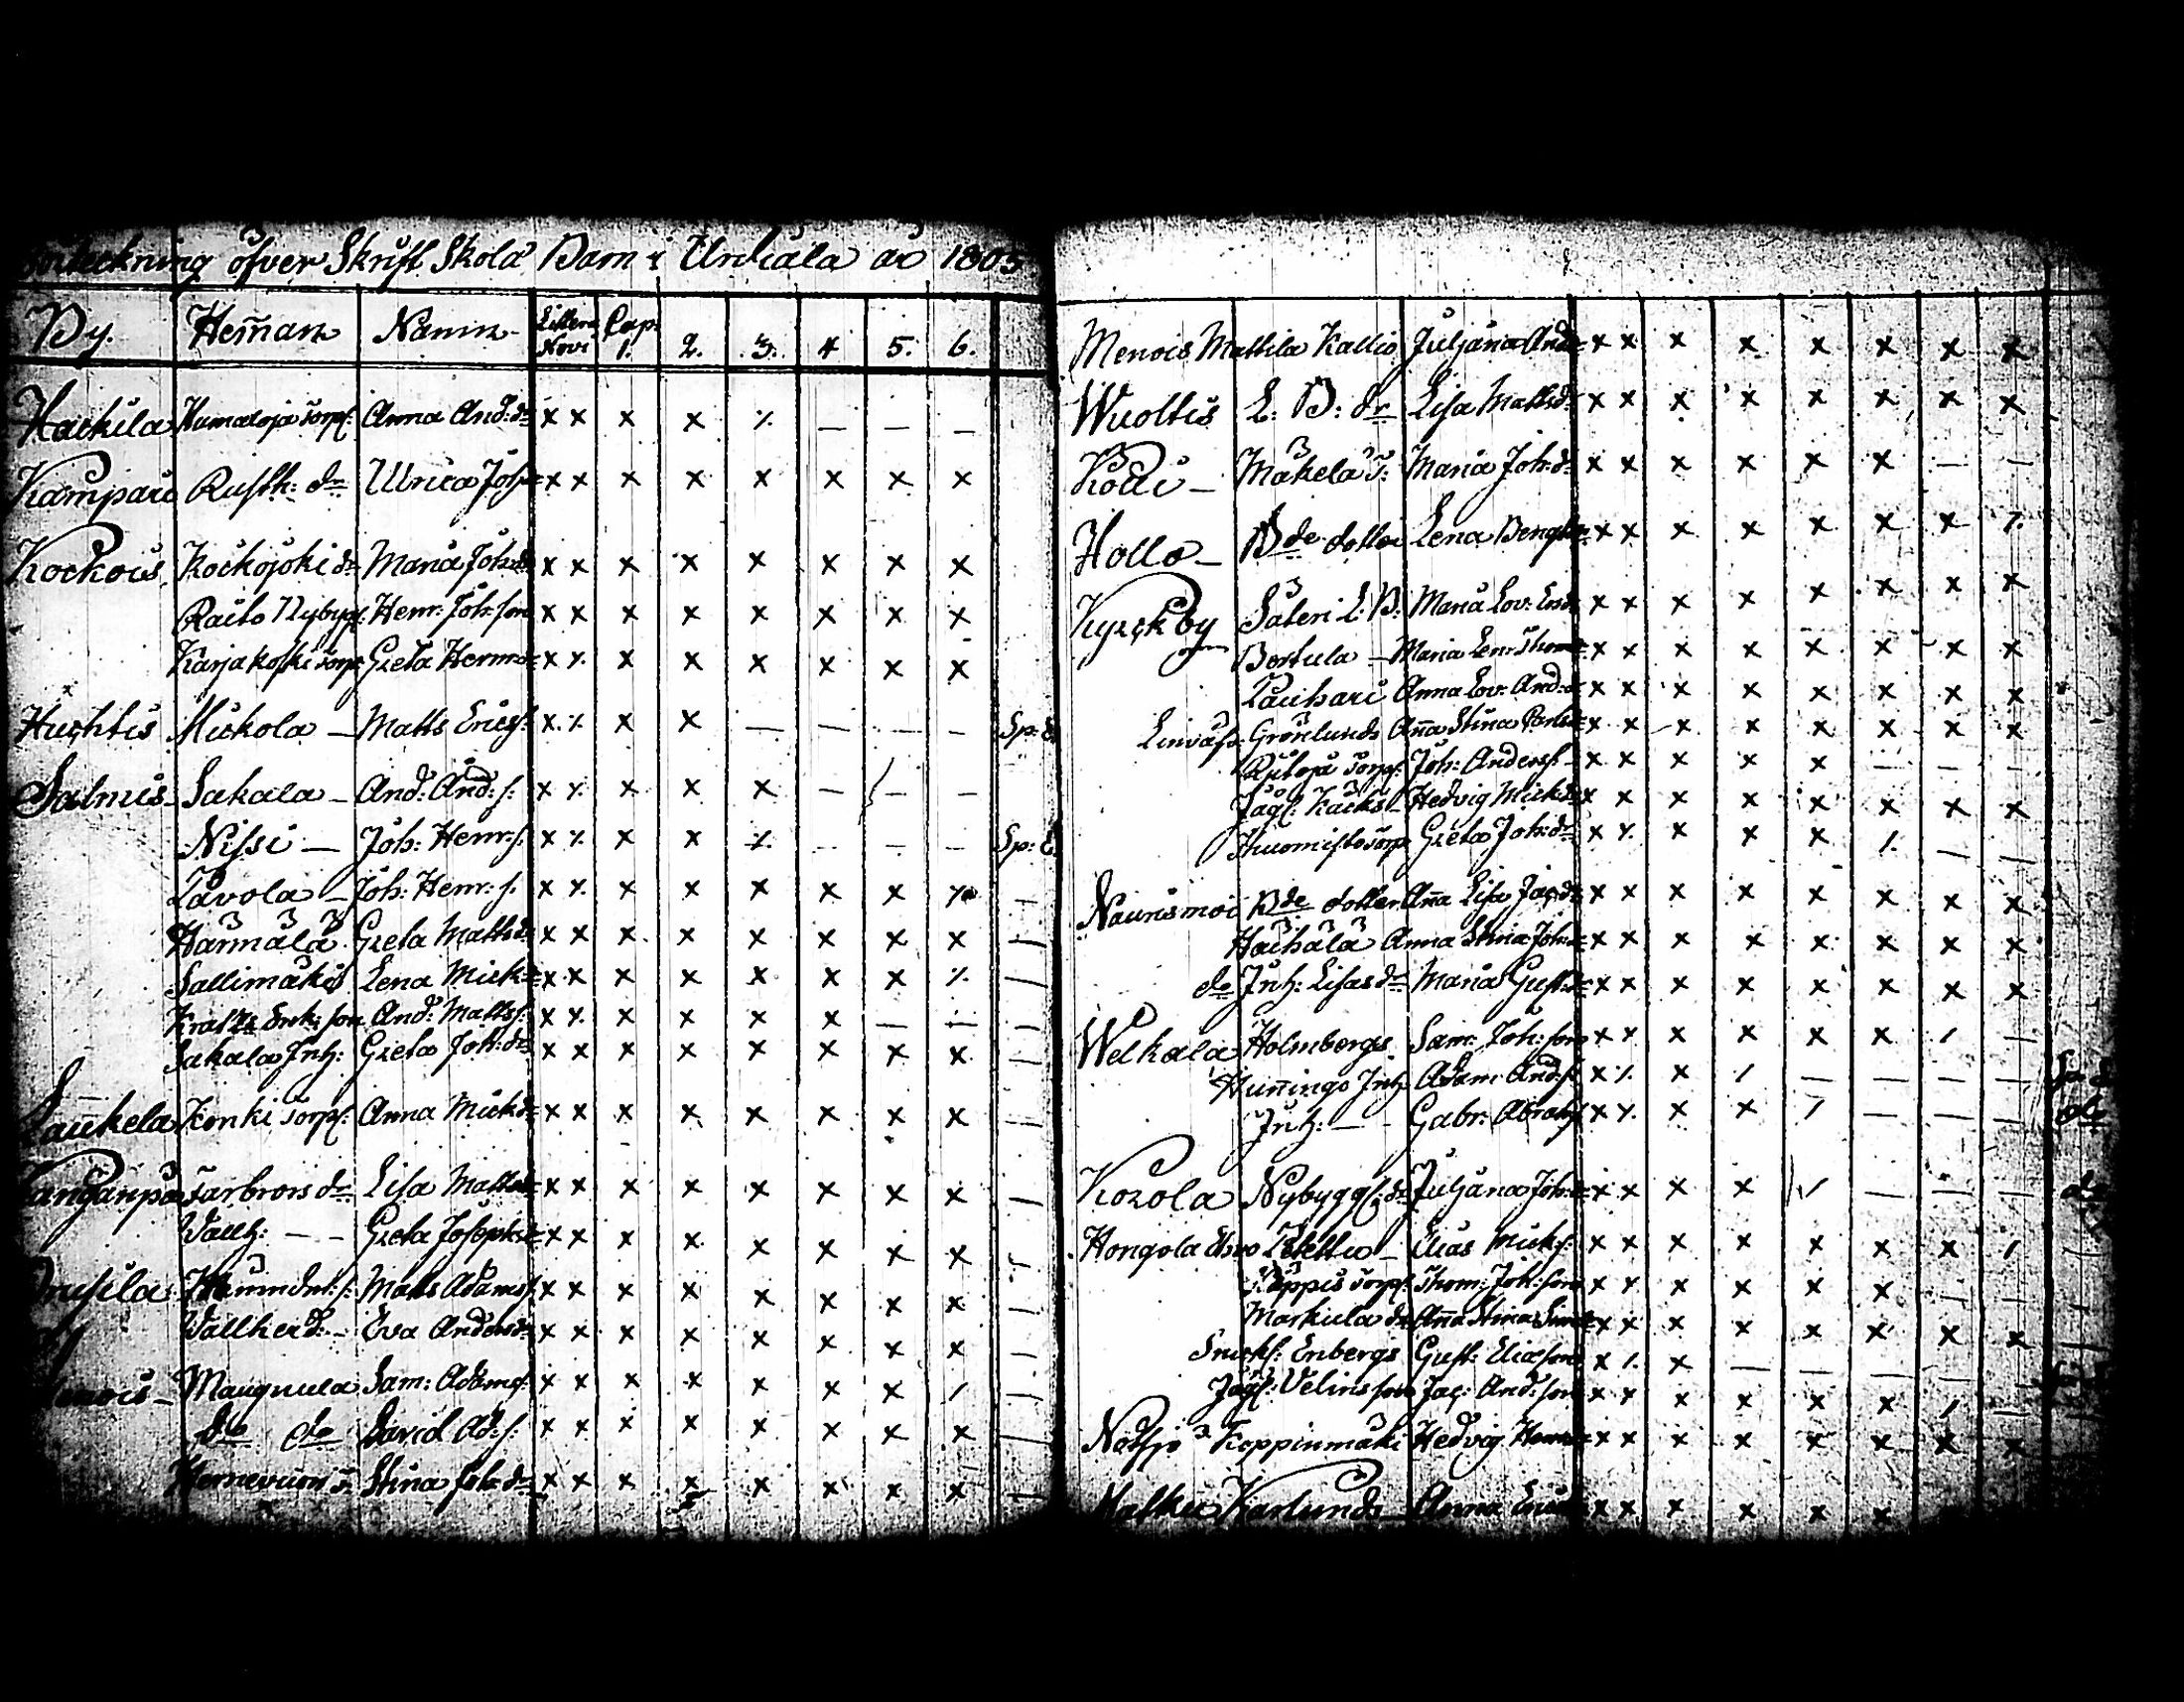 Förteckning öfver Skrift Skola Barn i Urdiala år 1805
By. Hem̄an Namn Littera Novi Cap: 1. 2. 3. 4 5. 6.
Hackila Humaloja Torp: Anna And: dr x x x x ⁒ — — —
Kampari Rusth: dr Ulrica Joh: x x x x x x x x
Kockois Kockojoki dr Maria Joh: dr x x x x x x x x
Raito Nybygg: Henr: Joh: son x x x x x x x x
Karjakoski Torp: Greta Henr: dr x ⁒ x x x x x x
Huchtis Mickola — Matts Ericss: x ⁒ x x — — — — Sp:
Salmis Sakala — And: And: s: x ⁒ x x x — — —
Nissi — Joh: Henr: s: x ⁒ x x ⁒ — — — Sp:
Tavola — Joh: Henr: s. x ⁒ x x x x x ⁒ —
Härmälä Greta Matts dr x x x x x x x x —
Sallimäki Lena Mick: x x x x x x x ⁒ —
Enk: son And: Matts s: x ⁒ x x x — — —
Sakala Inh: Greta Joh: dr x x x x x x x x —
Laukela Konki Torp: Anna Mick dr x x x x x x x x —
dr Lisa Matts dr x x x x x x x x —
Vallh: — Greta Josephs dr x x x x x x x x —
Matts Adams s: x x x x x x x x —
Vallherd: Eva Anders dr x x x x x x x x —
Maugnula Sam: Adams s: x x x x x x x / —
do do David Ad: s: x x x x x x x x —
Stina Joh: dr x x x x x x x x —
Menois Mattila Kallio Juljana And: x x x x x x x x
Wuoltis L: B: dr Lisa Matts dr x x x x x x x x
Kodi — Mäkelä T: Maria Joh: dr x x x x x x — —
Hollo — Bde dotter Lena Bengts x x x x x x x ⁒
Kyrckby Säteri L: B: Maria Lov: x x x x x x x x
Bostula — Maria Len: Thom: x x x x x x x x
Lauhari Anna Lov: And: dr x x x x x x x x
Grönlunds An̄a Stina x x x x x x x x
Torp: Joh: Anders s: x x x x x — — —
Jägs: Hedvig Mick dr x x x x x x x x
Huomisto Torp: Greta Joh: dr x ⁒ x x x ⁒ — —
Naurismoi Bde dotter An̄a Lisa Jac: dr x x x x x x x x
Hachala Anna Stina Joh: x x x x x x x x
do Inh: Lisas dr Maria Gust: dr x x x x x x x x
Welkala Holmbergs Sam: Joh: son x x x x x x / —
Hun̄ingo Inh: Adam And: s: x ⁒ x / — — — —
Inh: — Gabr: Abrah s: x ⁒ x x / — — — do
Korola Nybyggs: dr Juljana Joh: x x x x / — — — do
Hongola Elias Mick s: x x x x x x x /
Torp: Thom: Joh: son x x x x x x — —
Markula dr An̄a Stina x x x x x x x x
Enbergs Gust: Elias son x ⁒ x — — — — —
Jägs: Velins son Jac: And: son x x x x x x / —
Koppinmäki Hedvig x x x x x x x x
Karlunds Anna x x x x x x